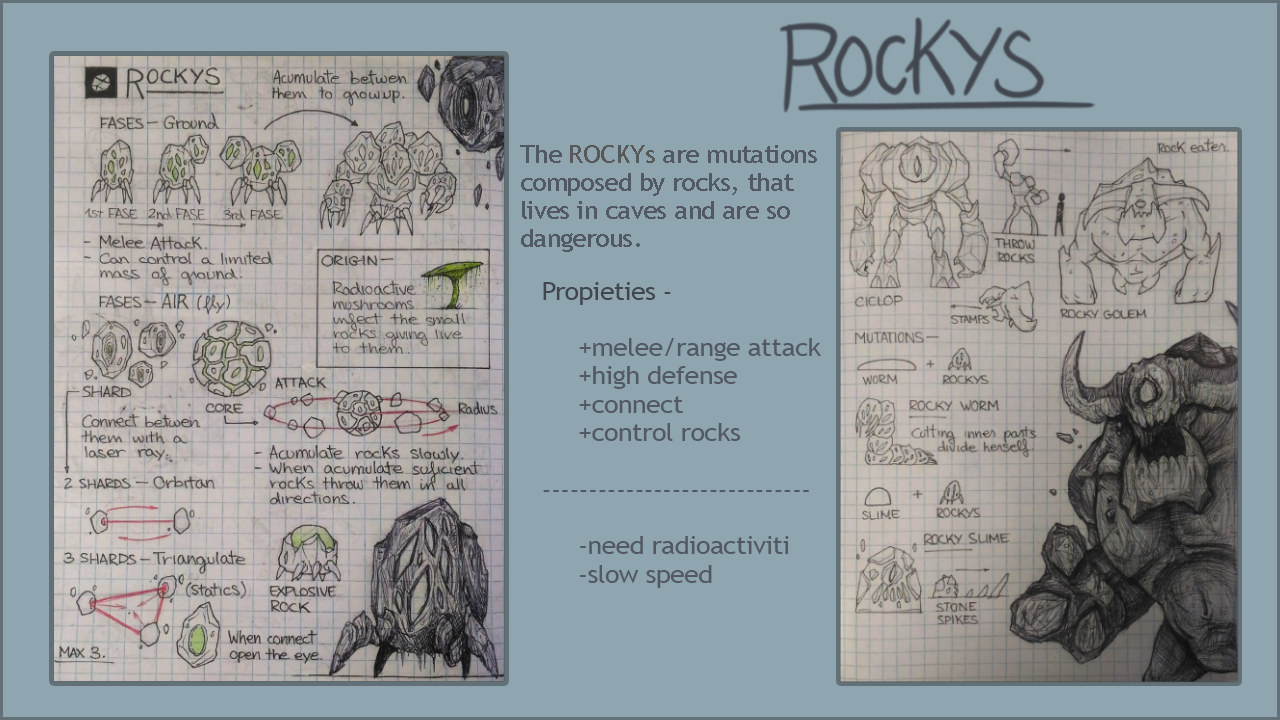 ROCKYS
ROCKYS
Acumulate betwen
them to growup.
FASES — Ground
1st FASE 2nd FASE 3rd FASE
- Melee Attack.
- Can control a limited
mass of ground.
ORIGIN —
Radioactive
mushrooms
infect the small
rocks giving live
to them.
FASES — AIR (fly)
SHARD
CORE
ATTACK
Radius
Connect betwen
them with a
laser ray.
- Acumulate rocks slowly.
- When acumulate suficient
rocks throw them in all
directions.
2 SHARDS — Orbitan
3 SHARDS — Triangulate
(statics)
EXPLOSIVE
ROCK
When connect
open the eye.
MAX 3.
The ROCKYs are mutations
composed by rocks, that
lives in caves and are so
dangerous.
Propieties -
+melee/range attack
+high defense
+connect
+control rocks
-----------------------------
-need radioactiviti
-slow speed
Rock eater.
THROW
ROCKS
CICLOP
STAMPS
ROCKY GOLEM
MUTATIONS —
WORM + ROCKYS
ROCKY WORM
Cutting inner parts
divide herself.
SLIME + ROCKYS
ROCKY SLIME
STONE
SPIKES